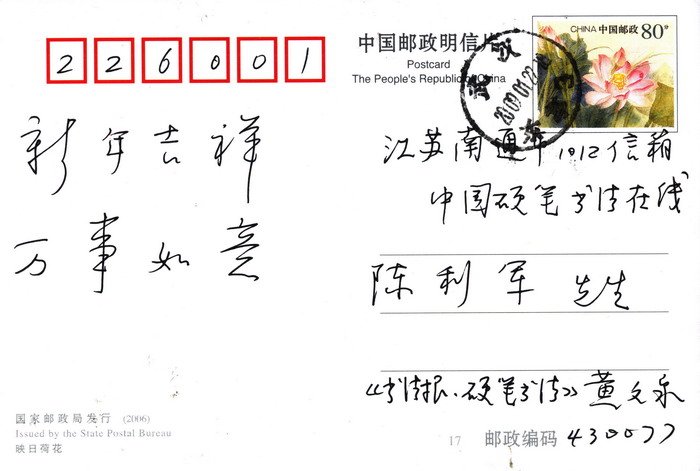 226001
中国邮政明信片
Postcard
The People's Republic of China
CHINA 中国邮政 80分
2009.01.22
新年吉祥
万事如意
江苏南通市1012信箱
中国硬笔书法在线
陈利军 先生
《书法报·硬笔书法》黄文泉
国家邮政局发行 (2006)
Issued by the State Postal Bureau
映日荷花
17 邮政编码 430077